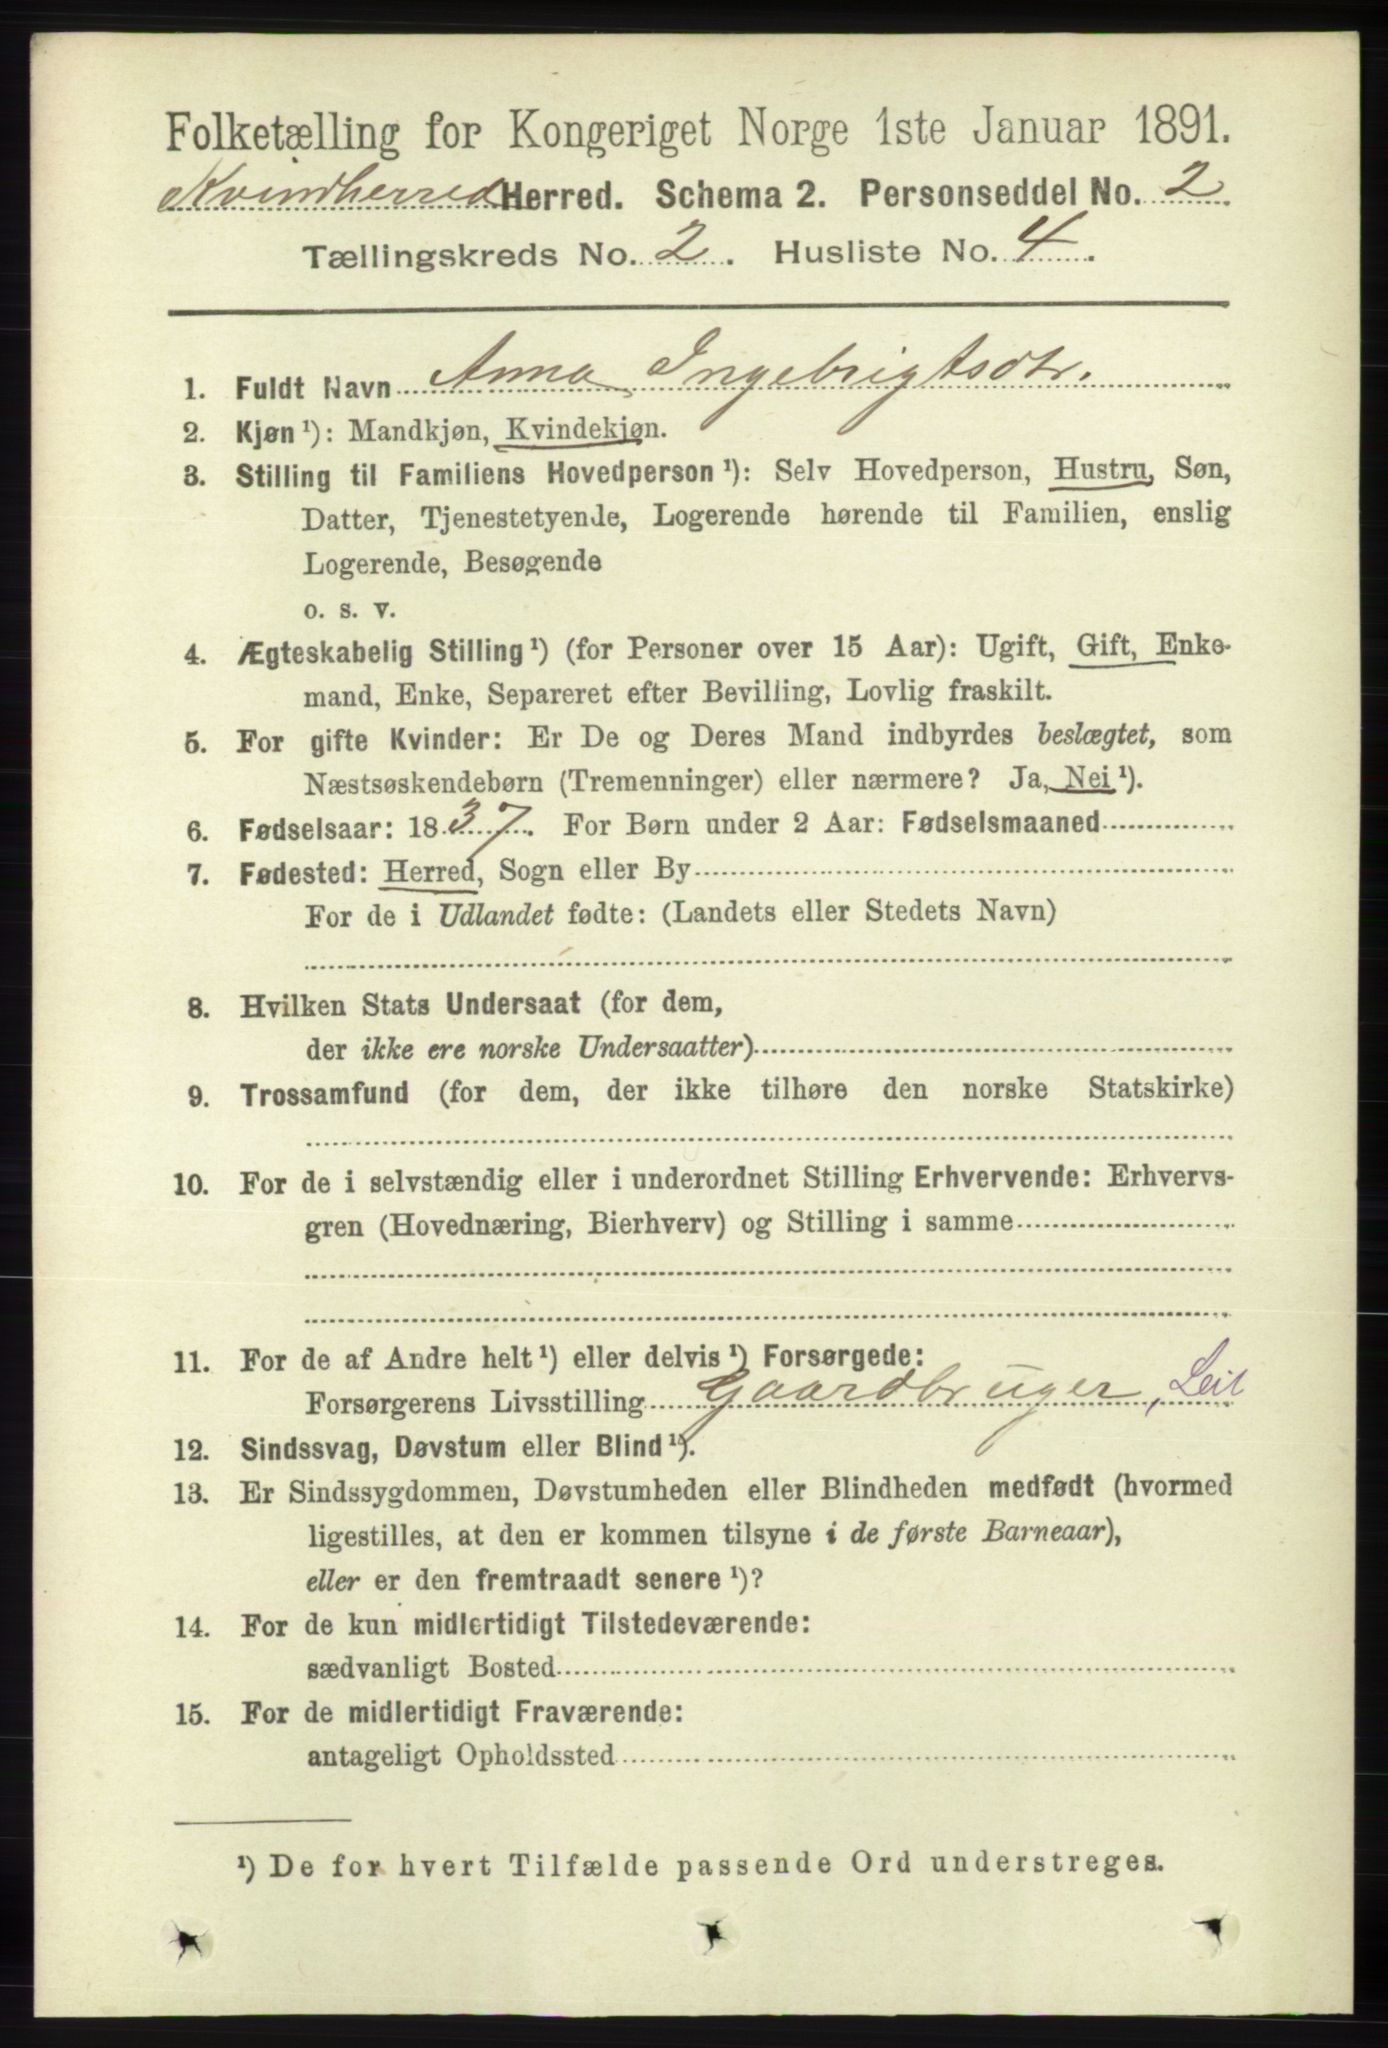 Folketælling for Kongeriget Norge 1ste Januar 1891.
Kvindherred Herred. Schema 2. Personseddel No. 2
Tællingskreds No. 2. Husliste No. 4.
1. Fuldt Navn Anna Ingebrigtsdtr.
2. Kjøn ¹): Mandkjøn, Kvindekjøn.
3. Stilling til Familiens Hovedperson ¹): Selv Hovedperson, Hustru, Søn,
Datter, Tjenestetyende, Logerende hørende til Familien, enslig
Logerende, Besøgende
o. s. v.
4. Ægteskabelig Stilling ¹) (for Personer over 15 Aar): Ugift, Gift, Enke-
mand, Enke, Separeret efter Bevilling, Lovlig fraskilt.
5. For gifte Kvinder: Er De og Deres Mand indbyrdes beslægtet, som
Næstsøskendebørn (Tremenninger) eller nærmere? Ja, Nei ¹).
6. Fødselsaar: 1837. For Børn under 2 Aar: Fødselsmaaned
7. Fødested: Herred, Sogn eller By
For de i Udlandet fødte: (Landets eller Stedets Navn)
8. Hvilken Stats Undersaat (for dem,
der ikke ere norske Undersaatter)
9. Trossamfund (for dem, der ikke tilhøre den norske Statskirke)
10. For de i selvstændig eller i underordnet Stilling Erhvervende: Erhvervs-
gren (Hovednæring, Bierhverv) og Stilling i samme
11. For de af Andre helt ¹) eller delvis ¹) Forsørgede:
Forsørgerens Livsstilling Gaardbruger, Leil
12. Sindssvag, Døvstum eller Blind ¹).
13. Er Sindssygdommen, Døvstumheden eller Blindheden medfødt (hvormed
ligestilles, at den er kommen tilsyne i de første Barneaar),
eller er den fremtraadt senere ¹)?
14. For de kun midlertidigt Tilstedeværende:
sædvanligt Bosted
15. For de midlertidigt Fraværende:
antageligt Opholdssted
¹) De for hvert Tilfælde passende Ord understreges.